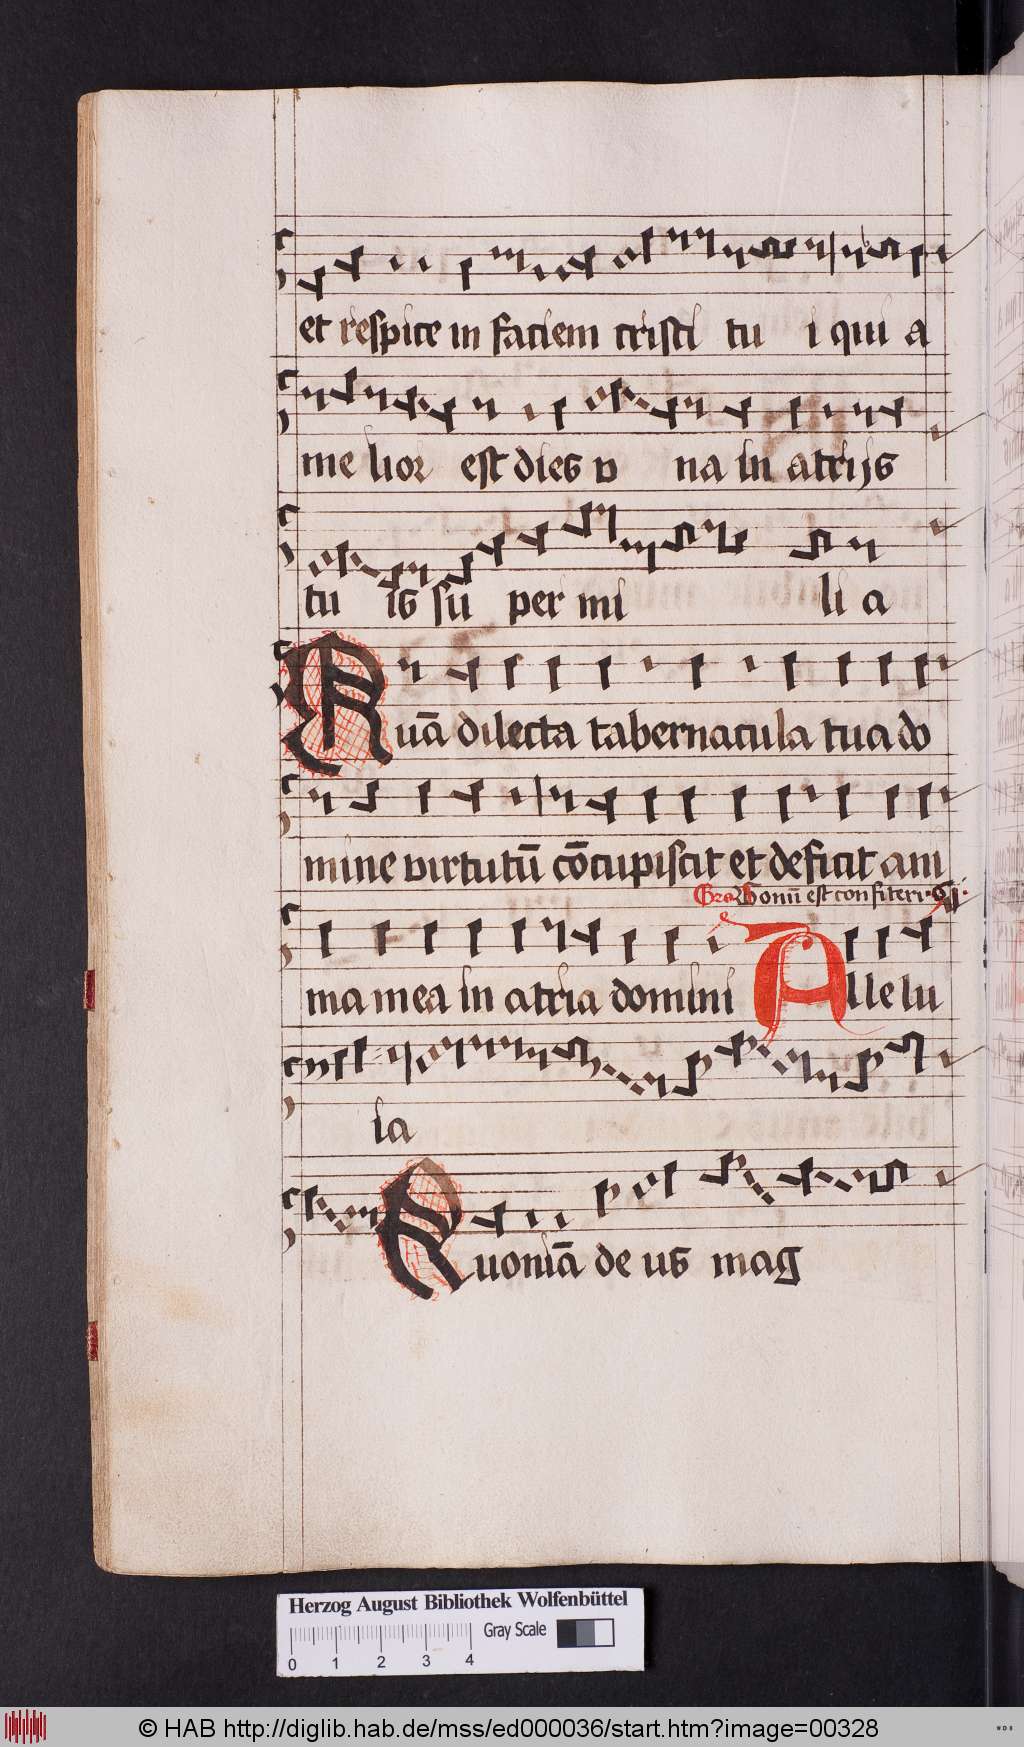 et respice in faciem cristi tu i qui a
me lior est dies v na in atrijs
tu is su per mi li a
Quā dilecta tabernacula tua do
mine virtutū cōcupiscit et deficit ani
Gra Bonū est confiteri
ma mea in atria domini Allelu
ia
Quoniā de us mag
Herzog August Bibliothek Wolfenbüttel
Gray Scale
0 1 2 3 4
© HAB http://diglib.hab.de/mss/ed000036/start.htm?image=00328